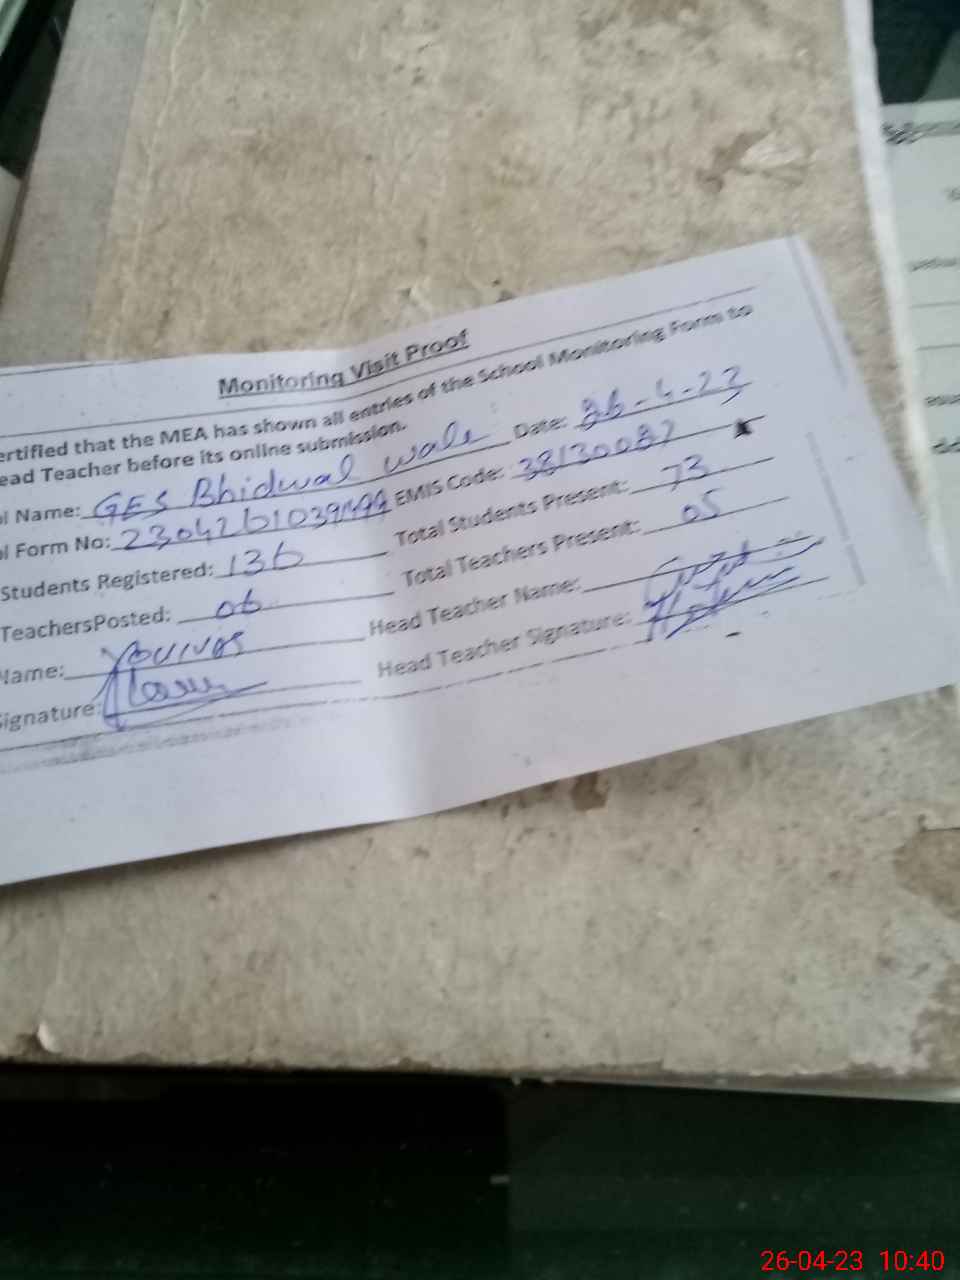 Monitoring Visit Proof
ertified that the MEA has shown all entries of the School Monitoring Form to
ead Teacher before its online submission.
ol Name: GES Bhidwal wala Date: 26-4-23
ol Form No: EMIS Code: 38130087
Students Registered: 136 Total Students Present: 73
TeachersPosted: 06 Total Teachers Present: 05
Name: Younas Head Teacher Name:
Signature: Head Teacher Signature:
26-04-23 10:40